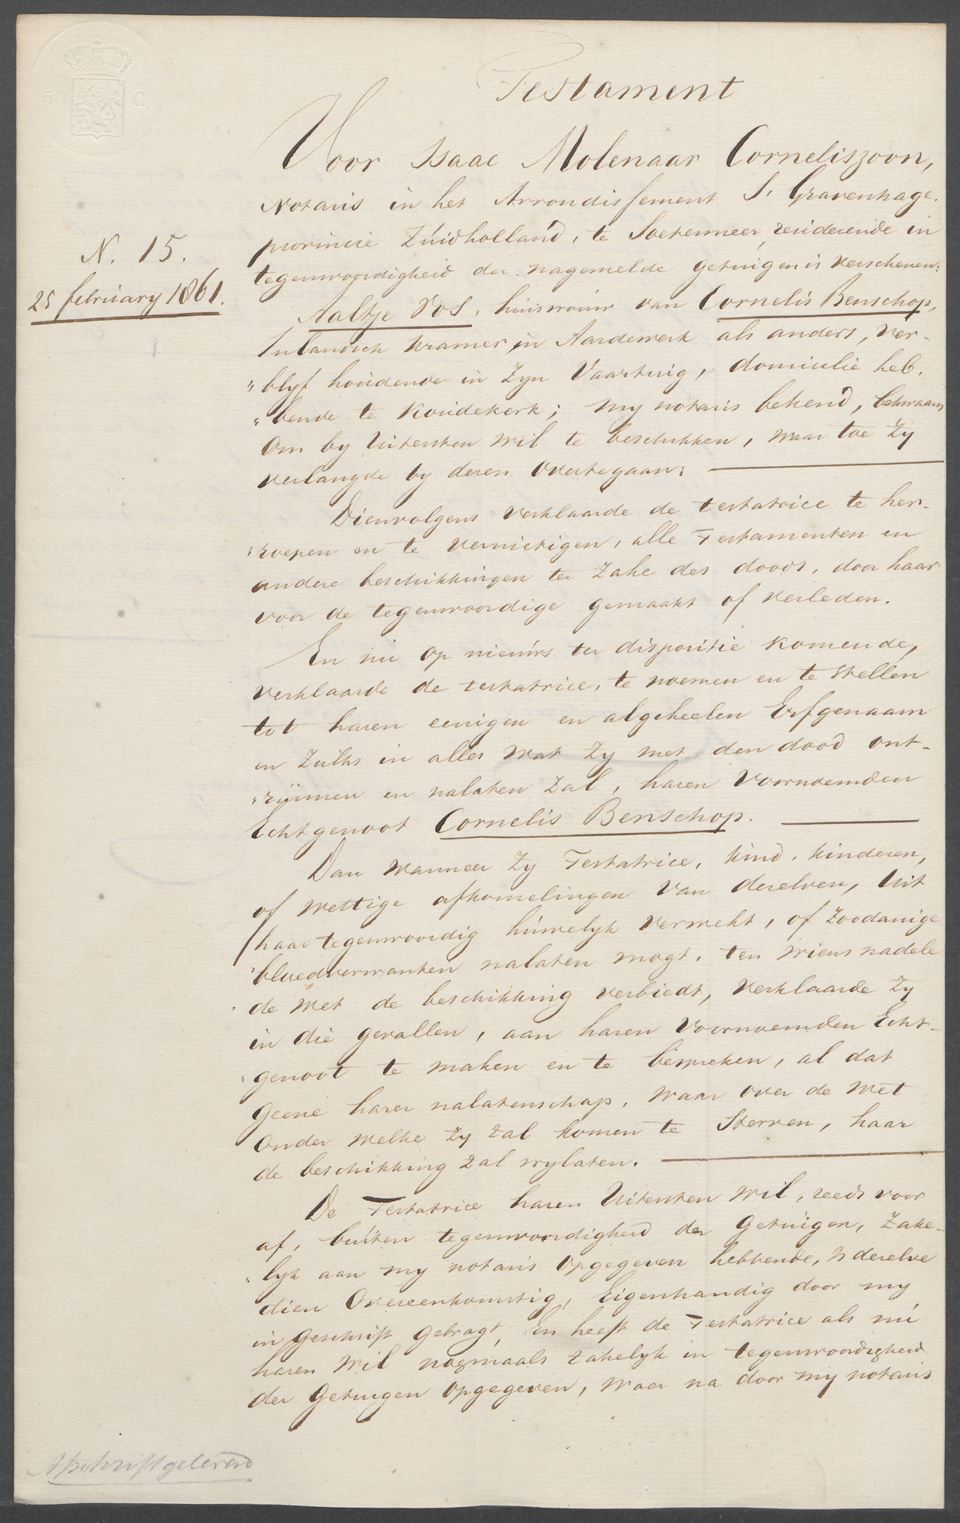 50 C.
Testament
Voor Isaac Molenaar Corneliszoon,
Notaris in het Arrondissement S. Gravenhage.
provincie Zúidholland, te Soetermeer, residerende in
N. 15.
tegenwoordigheid der nagemelde getuigen is verschenen:
25 february 1861.
Aaltje Vos, huisvrouw van Cornelis Benschop,
Inlandsch Kramer, in Aardewerk als anders, ver-
"blyf houdende in Zyn Vaartuig, domicilie heb-
"bende te Koudekerk; my notaris bekend, bekwaam
om by Uitersten wil te beschikken, waar toe Zy
verlangde by deren overtegaan:
Dienvolgens verklaarde de testatrice te her-
"roepen en te vernietigen, alle Testamenten en
andere beschikkingen ter Zake des doods, door haar
voor de tegenwoordige gemaakt of verleden.
En nu op nieuws ter dispositie komende,
verklaarde de testatrice, te noemen en te stellen
tot haren eenigen en algeheelen Erfgenaam
en Zulks in alles wat Zy met den dood ont-
"rúimen en nalaten Zal, haren Voornoemden
Echtgenoot Cornelis Benschop.
Dan wanneer Zy Testatrice, kind, kinderen,
of wettige afkomelingen van dezelven, Uit
haar tegenwoordig húwelyk verwekt, of Zoodanige
"bloedverwanten nalaten mogt, ten wiens nadele
de wet de beschikking verbiedt, verklaarde Zy
in die gevallen, aan haren Voornoemden Echt-
"genoot te maken en te bespreken, al dat
geene harer nalatenschap, waar over de wet
onder welke Zy Zal komen te Sterven, haar
de beschikking Zal vrylaten.
De Testatrice haren Uitersten wil, reeds voor
af, búiten tegenwoordigheid der Getúigen, Zake-
"lyk aan my notaris opgegeven hebbende, is dezelve
dien Overeenkomstig, Eigenhandig door my
in geschrift gebragt, En heeft de Testatrice als nú
haren wil nogmaals Zakelyk in tegenwoordigheid
der Getuigen opgegeven, waar na door my notaris
Afschrift geleverd